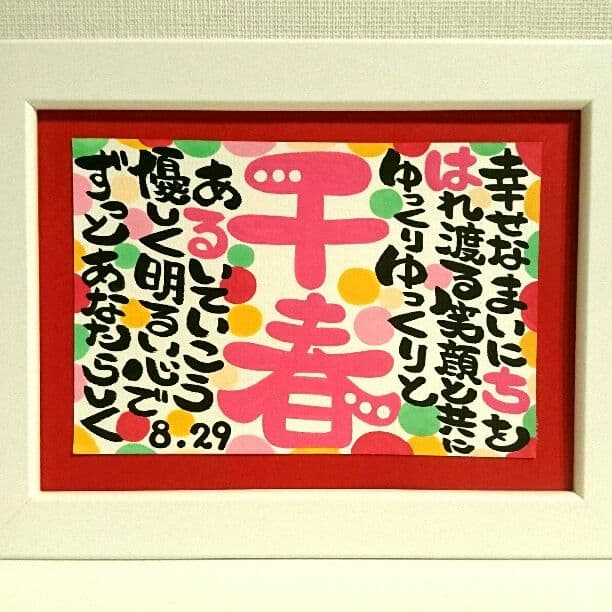 幸せなまいにちを
はれ渡る笑顔と共に
ゆっくりゆっくりと
千春
あるいていこう
優しく明るい心で
ずっとあなたらしく
8.29